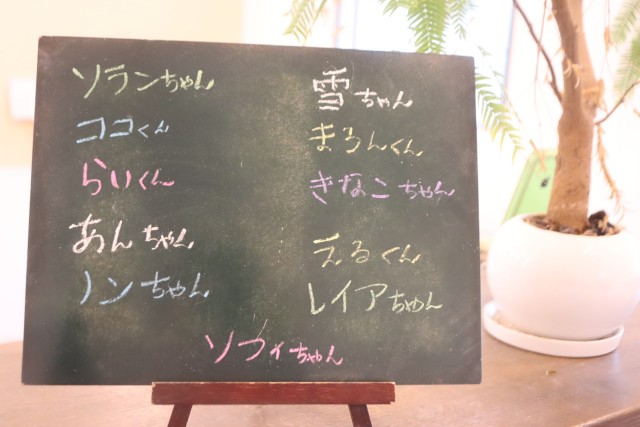 ソランちゃん
ココくん
らいくん
あんちゃん
ノンちゃん
雪ちゃん
まろんくん
きなこちゃん
えるくん
レイアちゃん
ソフィちゃん